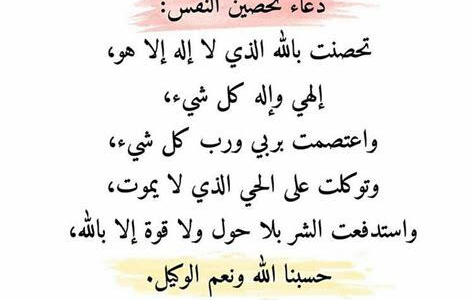 دعاء تحصين النفس:
تحصنت بالله الذي لا إله إلا هو،
إلهي وإله كل شيء،
واعتصمت بربي ورب كل شيء،
وتوكلت على الحي الذي لا يموت،
واستدفعت الشر بلا حول ولا قوة إلا بالله،
حسبنا الله ونعم الوكيل.